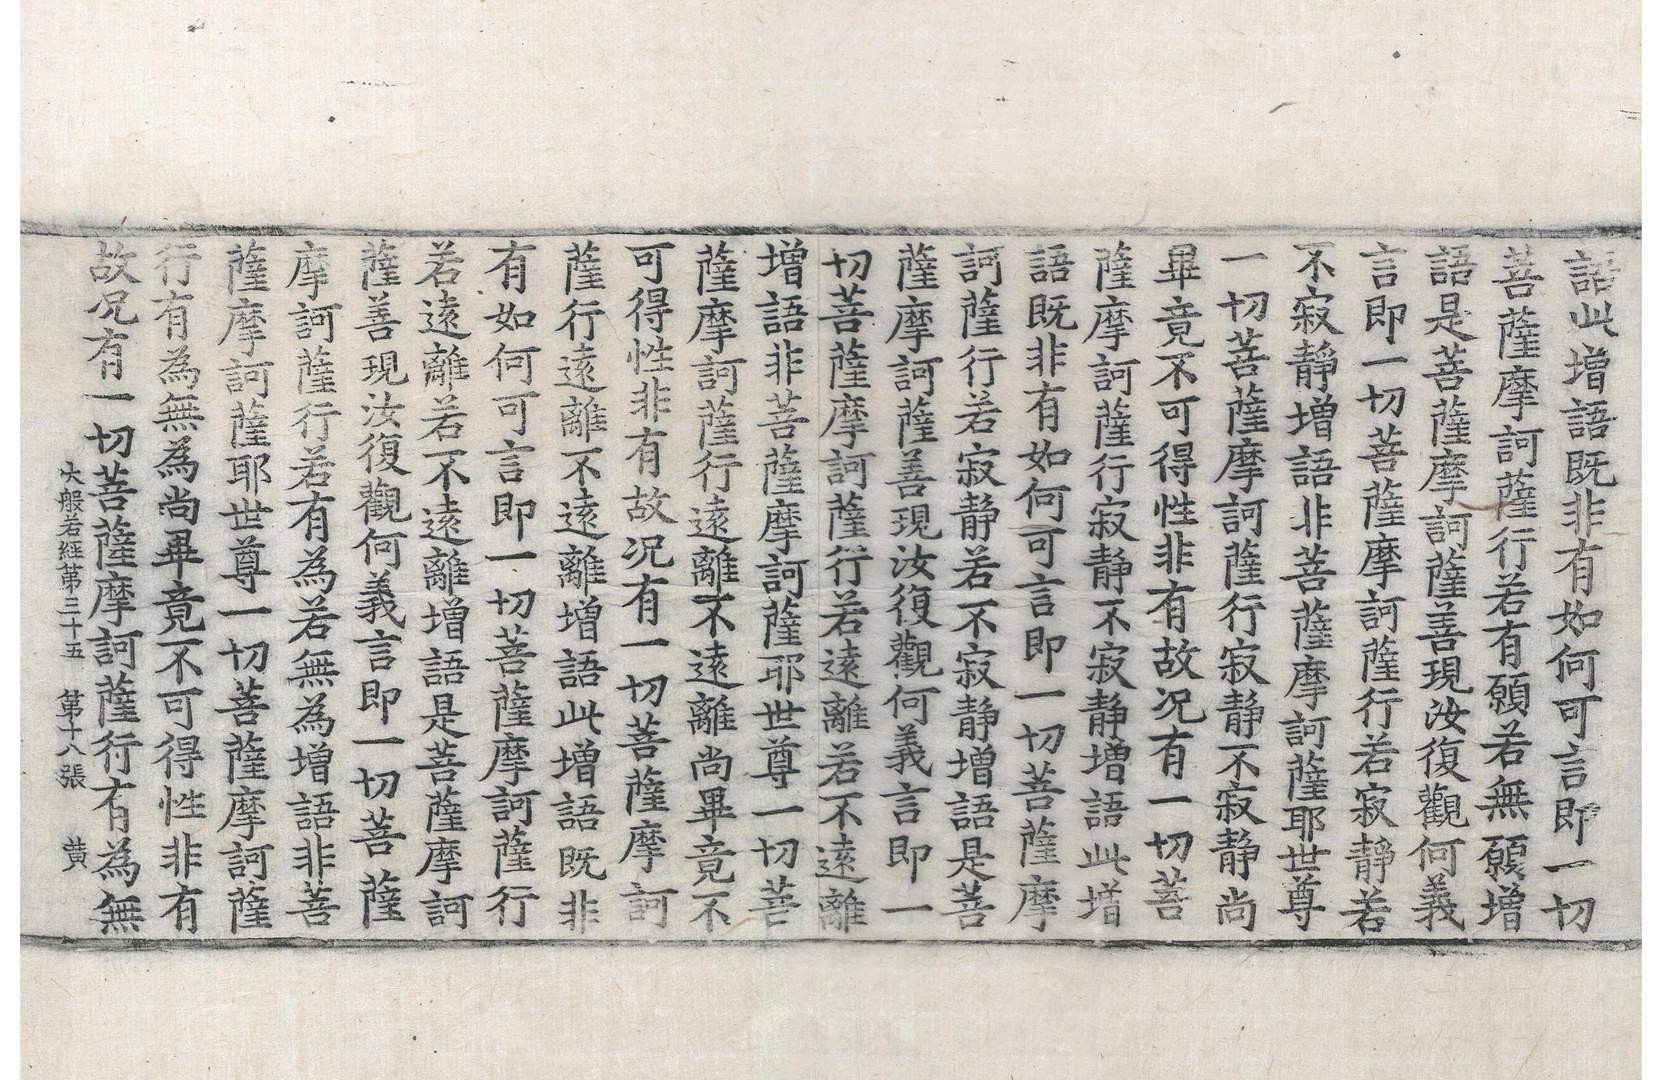 語此增語既非有如何可言即一切
菩薩摩訶薩行若有願若無願增
語是菩薩摩訶薩善現汝復觀何義
言即一切菩薩摩訶薩行若寂靜若
不寂靜增語非菩薩摩訶薩耶世尊
一切菩薩摩訶薩行寂靜不寂靜尚
畢竟不可得性非有故況有一切菩
薩摩訶薩行寂靜不寂靜增語此增
語既非有如何可言即一切菩薩摩
訶薩行若寂靜若不寂靜增語是菩
薩摩訶薩善現汝復觀何義言即一
切菩薩摩訶薩行若遠離若不遠離
增語非菩薩摩訶薩耶世尊一切菩
薩摩訶薩行遠離不遠離尚畢竟不
可得性非有故況有一切菩薩摩訶
薩行遠離不遠離增語此增語既非
有如何可言即一切菩薩摩訶薩行
若遠離若不遠離增語是菩薩摩訶
薩善現汝復觀何義言即一切菩薩
摩訶薩行若有為若無為增語非菩
薩摩訶薩耶世尊一切菩薩摩訶薩
行有為無為尚畢竟不可得性非有
故況有一切菩薩摩訶薩行有為無
大般若經第三十五 第十八張 黃